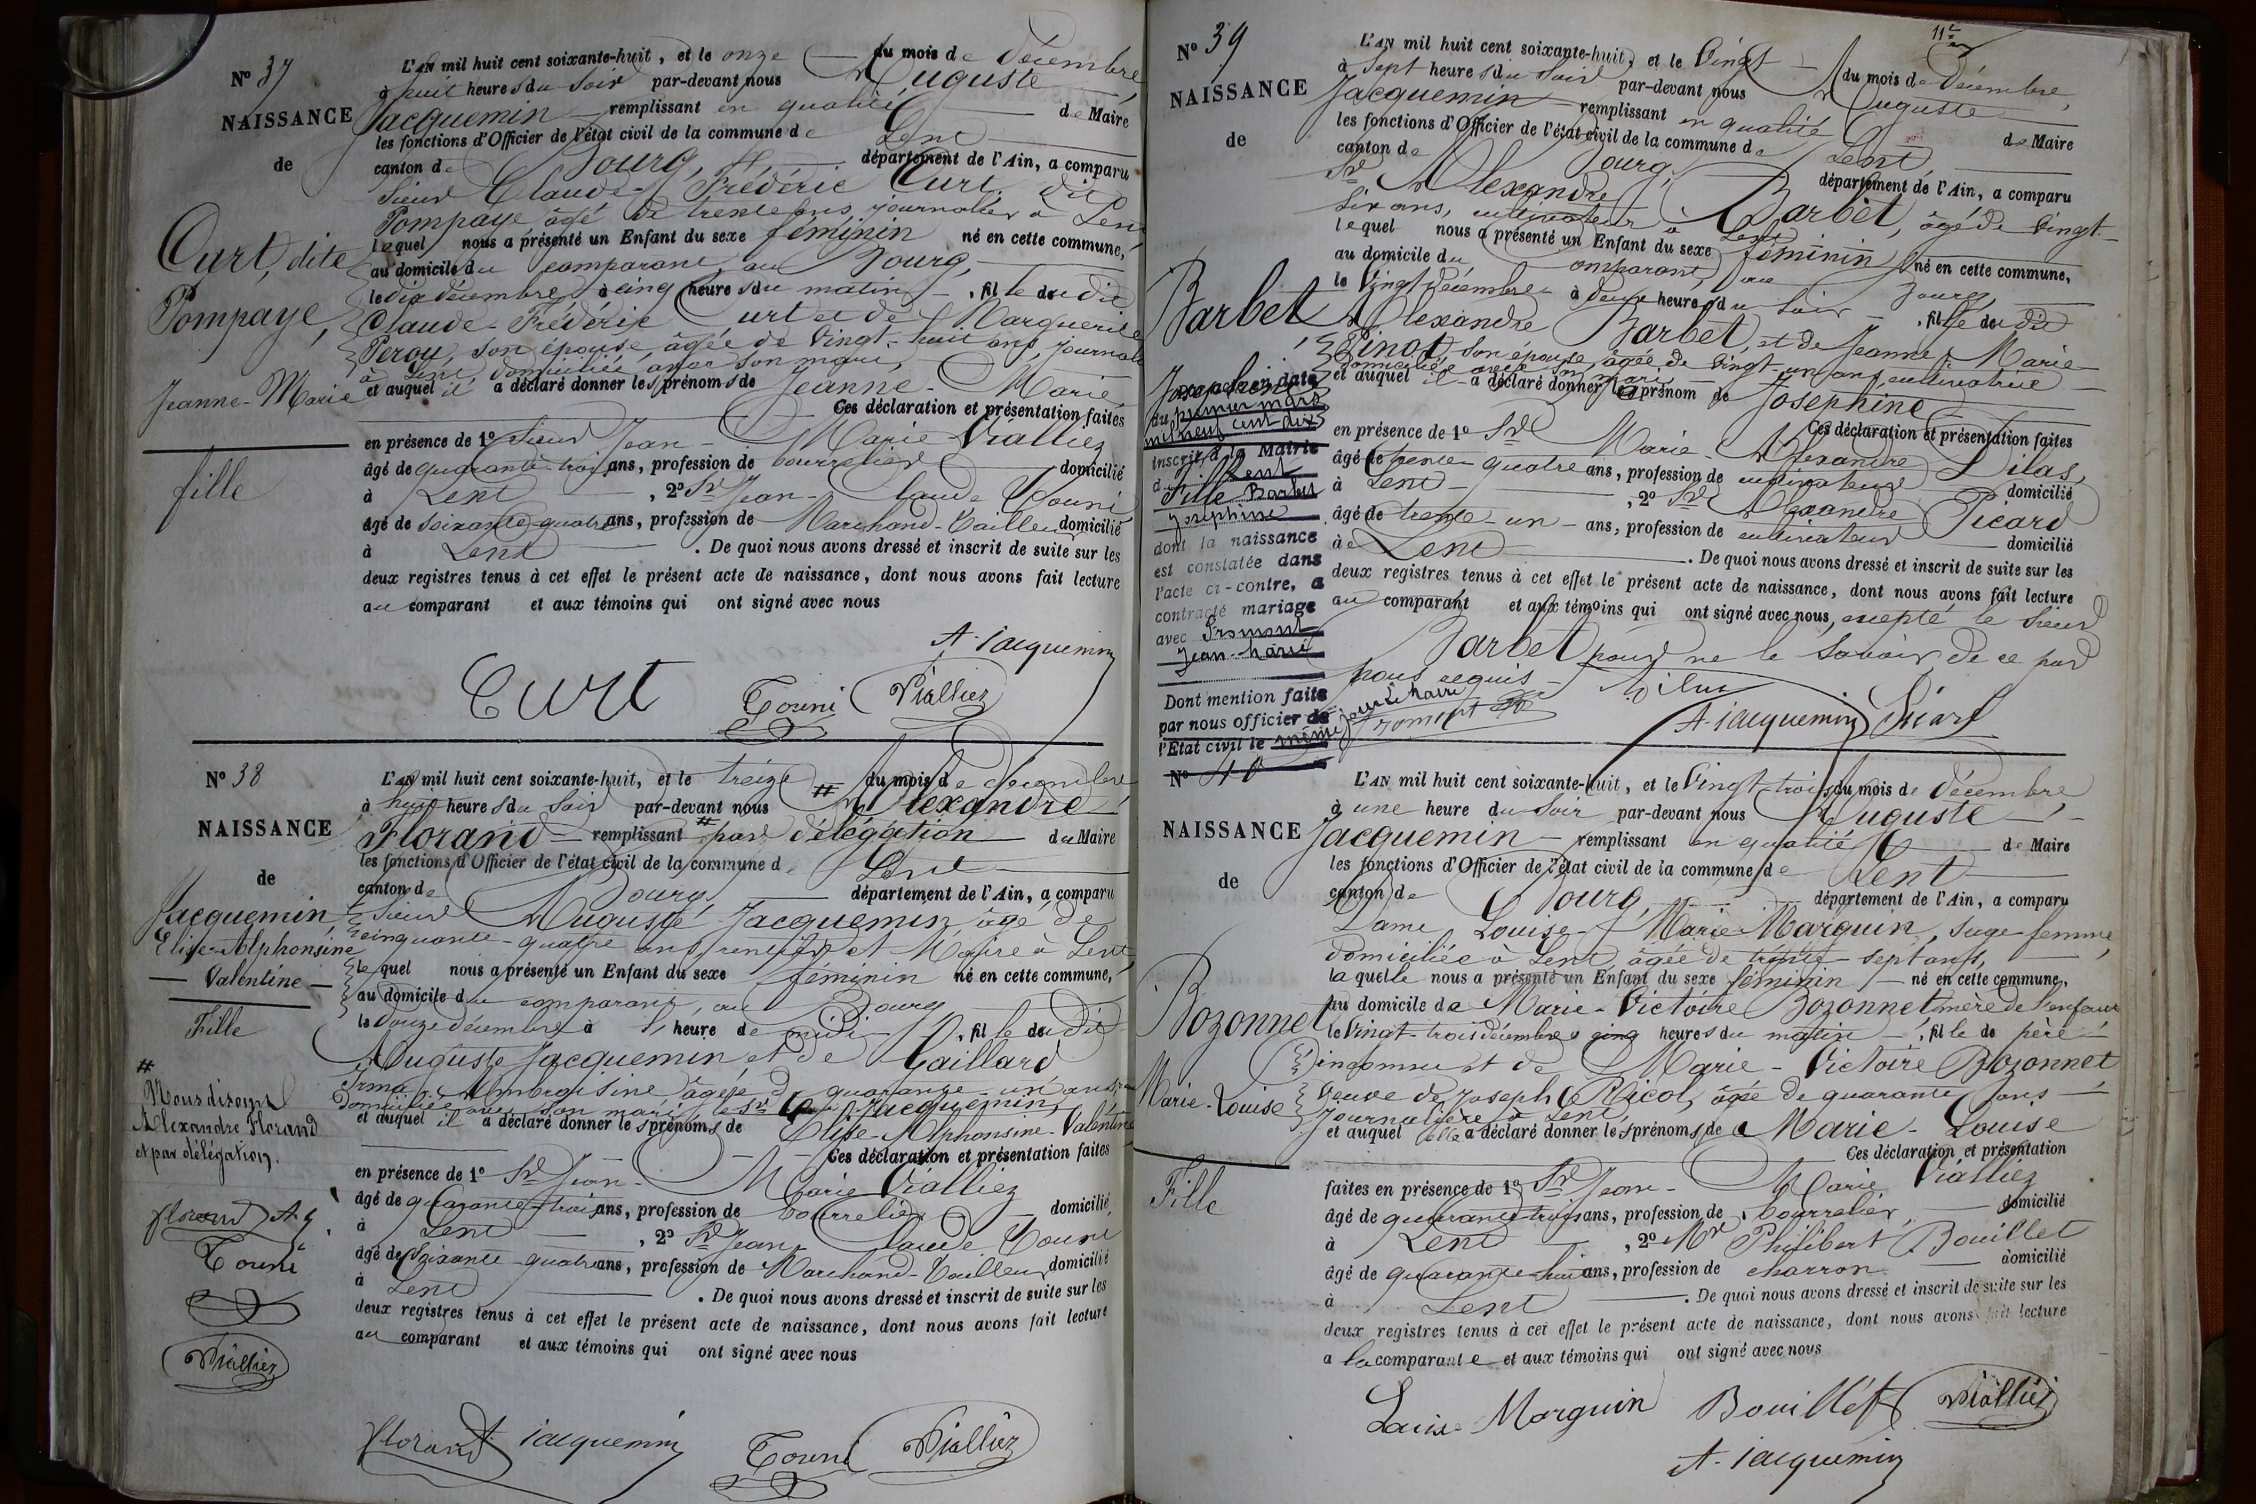 N° 37
NAISSANCE
de
Curt, dite
Pompaye,
Jeanne-Marie
fille
L'AN mil huit cent soixante-huit, et le onze du mois de décembre,
à huit heures du soir par-devant nous Auguste
Jacquemin remplissant en qualité de Maire
les fonctions d'Officier de l'état civil de la commune de Lent
canton de Bourg, département de l'Ain, a comparu
Sieur Claude-Frédéric Curt, dit
Pompaye âgé de trente ans, journalier à Lent
lequel nous a présenté un Enfant du sexe féminin né en cette commune,
au domicile du comparant, au Bourg,
le dix décembre à cinq heures du matin, fille du dit
Claude-Frédéric Curt et de Marguerite
Peroux, son épouse, âgée de vingt-huit ans, journalière
à Lent, domiciliée avec son mari,
et auquel il a déclaré donner les prénoms de Jeanne-Marie,
Ces déclaration et présentation faites
en présence de 1° Sieur Jean-Marie Vialliez
âgé de quarante-trois ans, profession de bourrelier domicilié
à Lent, 2° Sr Jean-Claude Touni
âgé de soixante-quatre ans, profession de Marchand-Tailleur domicilié
à Lent. De quoi nous avons dressé et inscrit de suite sur les
deux registres tenus à cet effet le présent acte de naissance, dont nous avons fait lecture
au comparant et aux témoins qui ont signé avec nous
A. Jacquemin
Curt Touni Vialliez
N° 38
NAISSANCE
de
Jacquemin,
Elise-Alphonsine
Valentine
Fille
#
Nous disons
Alexandre Florand
et par délégation.
Florand A. J
Touni
Vialliez
L'AN mil huit cent soixante-huit, et le treize du mois de décembre
à huit heures du soir par-devant nous # Alexandre
Florand remplissant # par délégation du Maire
les fonctions d'Officier de l'état civil de la commune de Lent
canton de Bourg, département de l'Ain, a comparu
Sieur Auguste Jacquemin, âgé de
cinquante-quatre ans, rentier et Maire à Lent
lequel nous a présenté un Enfant du sexe féminin né en cette commune,
au domicile du comparant, au Bourg
le douze décembre à l'heure de midi, fille du dit
Auguste Jacquemin, et de Gaillard
Irma Ambroisine âgée de quarante-un ans,
domiciliée avec son mari, le Sr Jacquemin,
et auquel il a déclaré donner les prénoms de Elise-Alphonsine-Valentine
Ces déclaration et présentation faites
en présence de 1° Sr Jean-Marie Vialliez
âgé de quarante-trois ans, profession de bourrelier domicilié
à Lent, 2° Sr Jean-Claude Touni
âgé de soixante-quatre ans, profession de Marchand-Tailleur domicilié
à Lent. De quoi nous avons dressé et inscrit de suite sur les
deux registres tenus à cet effet le présent acte de naissance, dont nous avons fait lecture
au comparant et aux témoins qui ont signé avec nous
Florand A. Jacquemin Touni Vialliez
11e
N° 39
NAISSANCE
de
Barbet,
Joséphine
Par acte en date
du premier mars
mil neuf cent dix
inscrit à la Mairie
d Lent
Fille Barbet
Joséphine
dont la naissance
est constatée dans
l'acte ci-contre, a
contracté mariage
avec Fromont
Jean-Marie
Dont mention faite
par nous officier de
l'Etat civil le même jour
L'AN mil huit cent soixante-huit, et le vingt du mois de décembre,
à sept heures du soir par-devant nous Auguste
Jacquemin remplissant en qualité de Maire
les fonctions d'Officier de l'état civil de la commune de Lent
canton de Bourg, département de l'Ain, a comparu
Sr Alexandre Barbet, âgé de vingt-
six ans, cultivateur à Lent
lequel nous a présenté un Enfant du sexe féminin né en cette commune,
au domicile du comparant, au Bourg,
le vingt décembre à deux heures du soir, fille du dit
Alexandre Barbet, et de Jeanne-Marie
Pinot, son épouse, âgée de vingt-un ans, cultivatrice
domiciliée avec son mari
et auquel il a déclaré donner le prénom de Joséphine
Ces déclaration et présentation faites
en présence de 1° Sr Marie-Alexandre Dilas,
âgé de trente-quatre ans, profession de cultivateur domicilié
à Lent, 2° Sr Alexandre Picard
âgé de trente-un ans, profession de cultivateur domicilié
à Lent. De quoi nous avons dressé et inscrit de suite sur les
deux registres tenus à cet effet le présent acte de naissance, dont nous avons fait lecture
au comparant et aux témoins qui ont signé avec nous, excepté le Sieur
Barbet pour ne le savoir, de ce par
nous requis
Dilas
A. Jacquemin Picard
N° 40
NAISSANCE
de
Bozonnet
Marie-Louise
Fille
L'AN mil huit cent soixante-huit, et le vingt-trois du mois de décembre
à une heure du soir par-devant nous Auguste
Jacquemin remplissant en qualité de Maire
les fonctions d'Officier de l'état civil de la commune de Lent
canton de Bourg, département de l'Ain, a comparu
Dame Louise-Marie Marguin, sage femme,
domiciliée à Lent, âgée de trente-sept ans,
laquelle nous a présenté un Enfant du sexe féminin né en cette commune,
au domicile de Marie-Victoire Bozonnet mère de l'enfant
le vingt-trois décembre à cinq heures du matin, fille de père
inconnu et de Marie-Victoire Bozonnet
veuve de Joseph Nicol, âgée de quarante ans
journalière à Lent,
et auquel elle a déclaré donner les prénoms de Marie-Louise
Ces déclaration et présentation
faites en présence de 1° Sr Jean-Marie Vialliez
âgé de quarante-trois ans, profession de bourrelier domicilié
à Lent, 2° Mr Philibert Bouillet
âgé de quarante-huit ans, profession de charron domicilié
à Lent. De quoi nous avons dressé et inscrit de suite sur les
deux registres tenus à cet effet le présent acte de naissance, dont nous avons fait lecture
a la comparante et aux témoins qui ont signé avec nous
Louise Marguin Bouillet Vialliez
A. Jacquemin